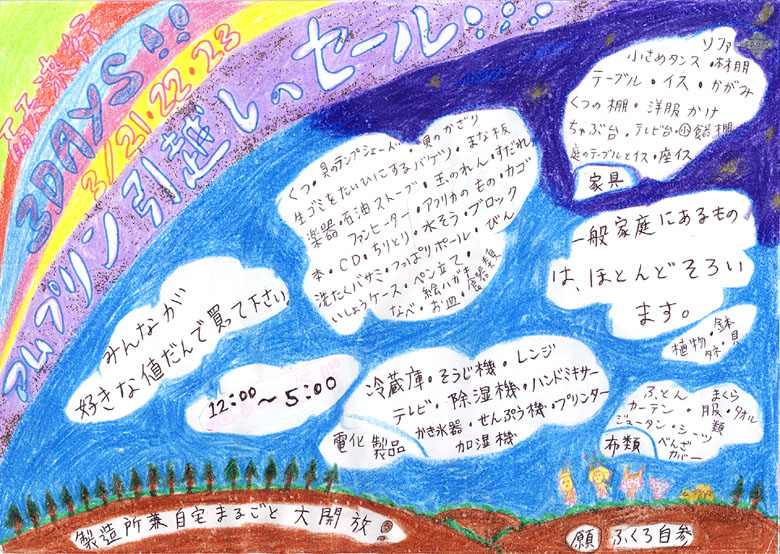 雨天決行
3DAYS!!
3/21.22.23
アムプリン引越しのセール
ソファ
小さめタンス・本棚
テーブル・イス・かがみ
くつの棚・洋服かけ
ちゃぶ台・テレビ台・小食器棚
庭のテーブルとイス・座イス
家具
くつ・貝のランプシェード・貝のかざり
生ゴミをたいひにするバケツ・まな板
楽器・石油ストーブ・玉のれん・すだれ
ファンヒーター・アフリカのもの・カゴ
本・CD・ちりとり・水そう・ブロック
洗たくバサミ・つっぱりポール・びん
いしょうケース・ペン立て・
絵ハガキ・食器類
なべ・お皿・
一般家庭にあるもの
は、ほとんどそろい
ます。
植物・鉢
タネ・貝
みんなが
好きな値だんで買って下さい。
12:00〜5:00
冷蔵庫・そうじ機・レンジ
テレビ・除湿機・ハンドミキサー
かき氷器・せんぷう機・プリンター
加湿機
電化製品
ふとん・まくら
カーテン・服・タオル類
ジュータン・シーツ
べんざカバー
布類
製造所兼自宅まるごと大開放
願 ふくろ自参